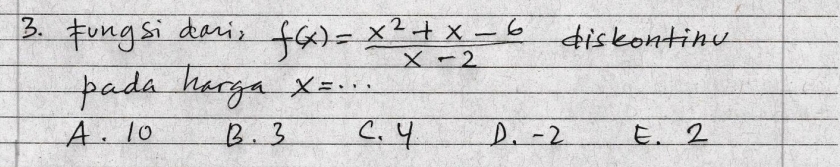 3. Fungsi dari, f(x) = x² + x - 6 / x - 2 diskontinu
pada harga x = ...
A. 10 B. 3 C. 4 D. -2 E. 2